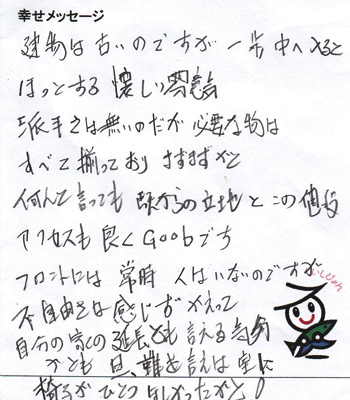 幸せメッセージ
建物は古いのですが一歩中へ入ると
ほっとする懐しい雰囲気
派手さは無いのだが必要な物は
すべて揃っており さすがだと
何んて言っても 駅からの立地とこの値段
アクセスも良く Goobです
フロントには 常時 人はいないのですが
不自由さは感じず かえって
自分の家の延長とも言える
も 難を言えば 室に
椅子がひとつ ほしかったかナ!
いしぴょん